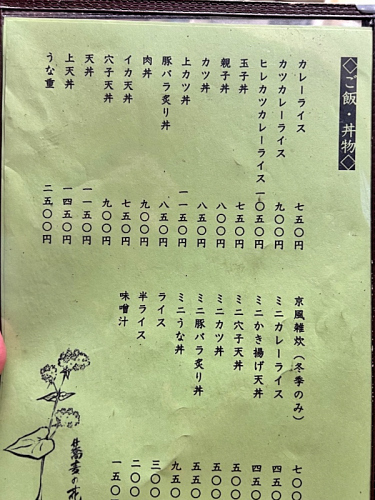 ◇ご飯・丼物◇
カレーライス 七五〇円
カツカレーライス 九〇〇円
ヒレカツカレーライス 一〇五〇円
玉子丼 七五〇円
親子丼 八〇〇円
カツ丼 八五〇円
上カツ丼 一一五〇円
豚バラ炙り丼 八五〇円
肉丼 九〇〇円
イカ天丼 七五〇円
穴子天丼 九〇〇円
天丼 一一五〇円
上天丼 一四五〇円
うな重 二五〇〇円
京風雑炊（冬季のみ） 七〇
ミニカレーライス 四五
ミニかき揚げ天丼 四五〇
ミニ穴子天丼 五〇〇
ミニカツ丼 五五〇
ミニ豚バラ炙り丼 五五〇
ミニうな丼 九五〇
ライス 三〇〇
半ライス 二〇〇
味噌汁 一五〇
蕎麦の花